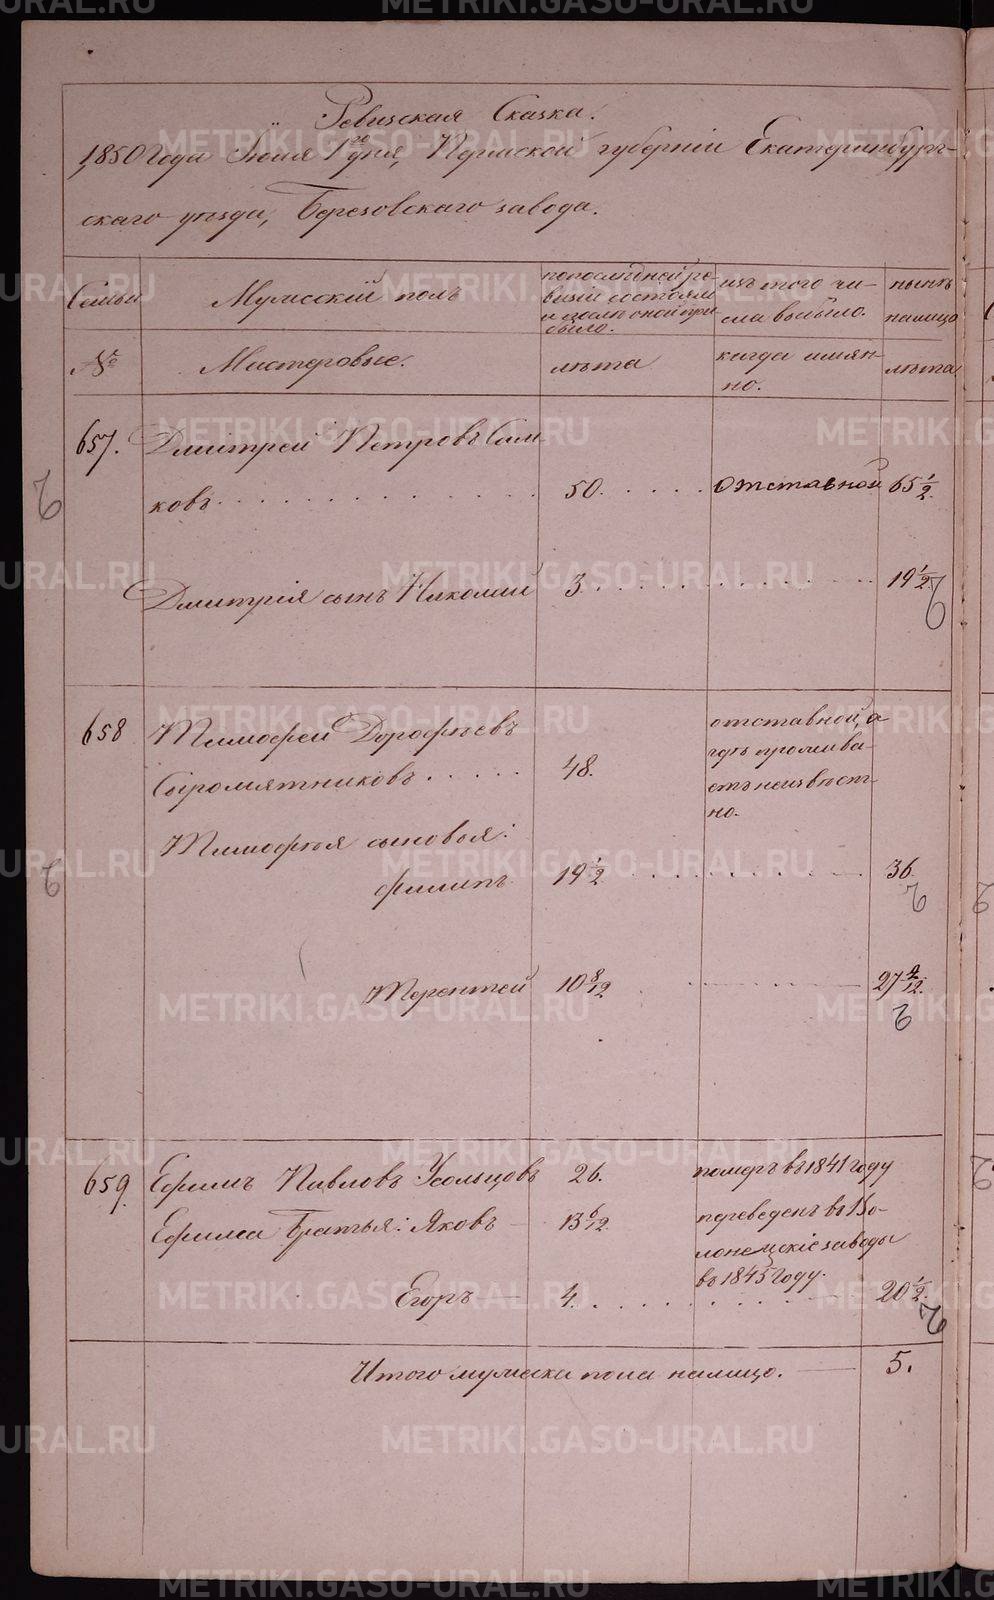 Ревизская Сказка.
1850 года Июня 1го дня, Пермской губернiи Екатеринбург-
скаго уѣзда, Березовскаго завода.
Семьи
Мужескiй полъ
по последней ре-
визiи состояло
и после оной при-
было.
изъ того чи-
сла выбыло.
нынѣ
налицо
№
Мастеровые.
лѣта
когда имян-
но.
лѣта
657. Дмитрей Петровъ
ковъ 50. отставной 65 1/2
Дмитрiя сынъ Николай 3. 19 1/2
658 Тимофей Дорофѣевъ
Сыромятниковъ 48.
отставной, а
гдѣ прожива-
етъ неизвѣст-
но.
Тимофея сыновья:
Филипъ 19 1/2 36.
Терентей 10 8/12 27
659. Ефимъ Павловъ Усольцовъ 26. померъ въ 1841 году
Ефима Братья: Яковъ 13 6/12. переведенъ въ Бо-
заводы
въ 1845 году.
Егоръ 4. 20 1/2.
Итого мужеска пола налицо. 5.
METRIKI.GASO-URAL.RU